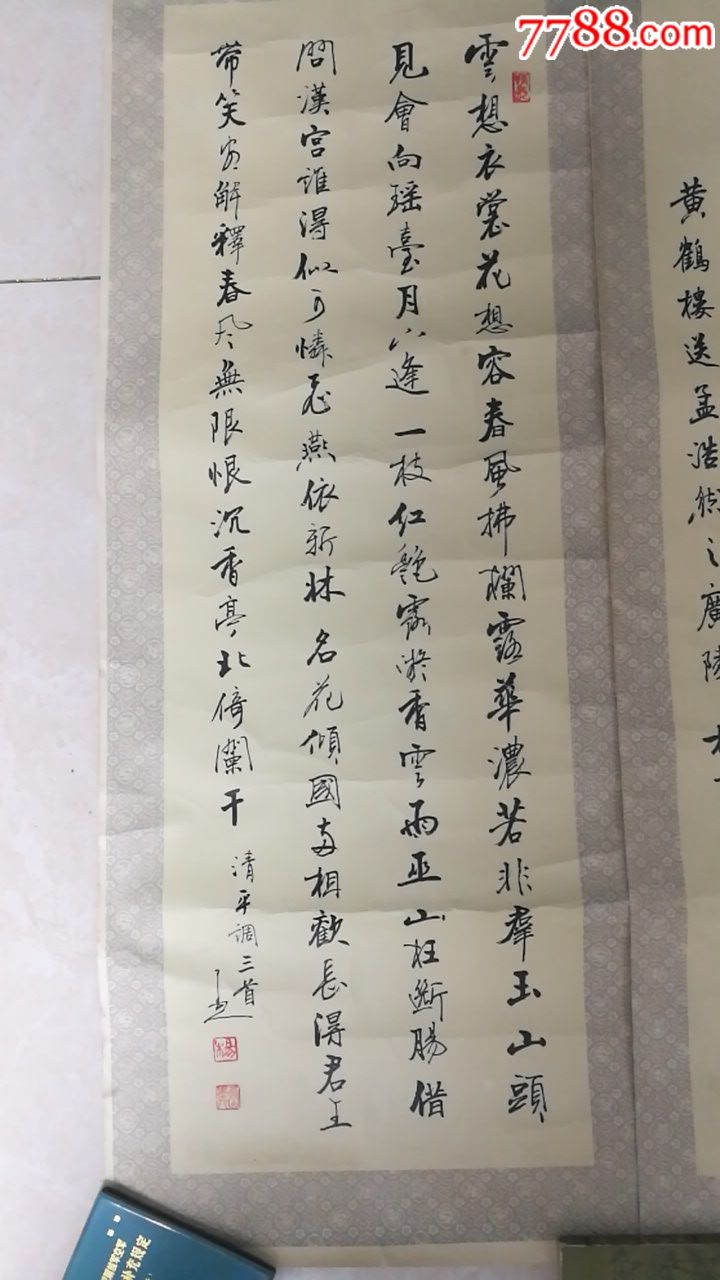 7788.com
黄鶴樓送孟浩然之廣陵
雲想衣裳花想容春風拂欄露華濃若非羣玉山頭
見會向瑶臺月下逢一枝红艷露凝香雲雨巫山枉斷腸借
問漢宫誰得似可憐飛燕依新妝名花傾國两相歡長得君王
帶笑看解釋春风無限恨沉香亭北倚闌干
清平調三首